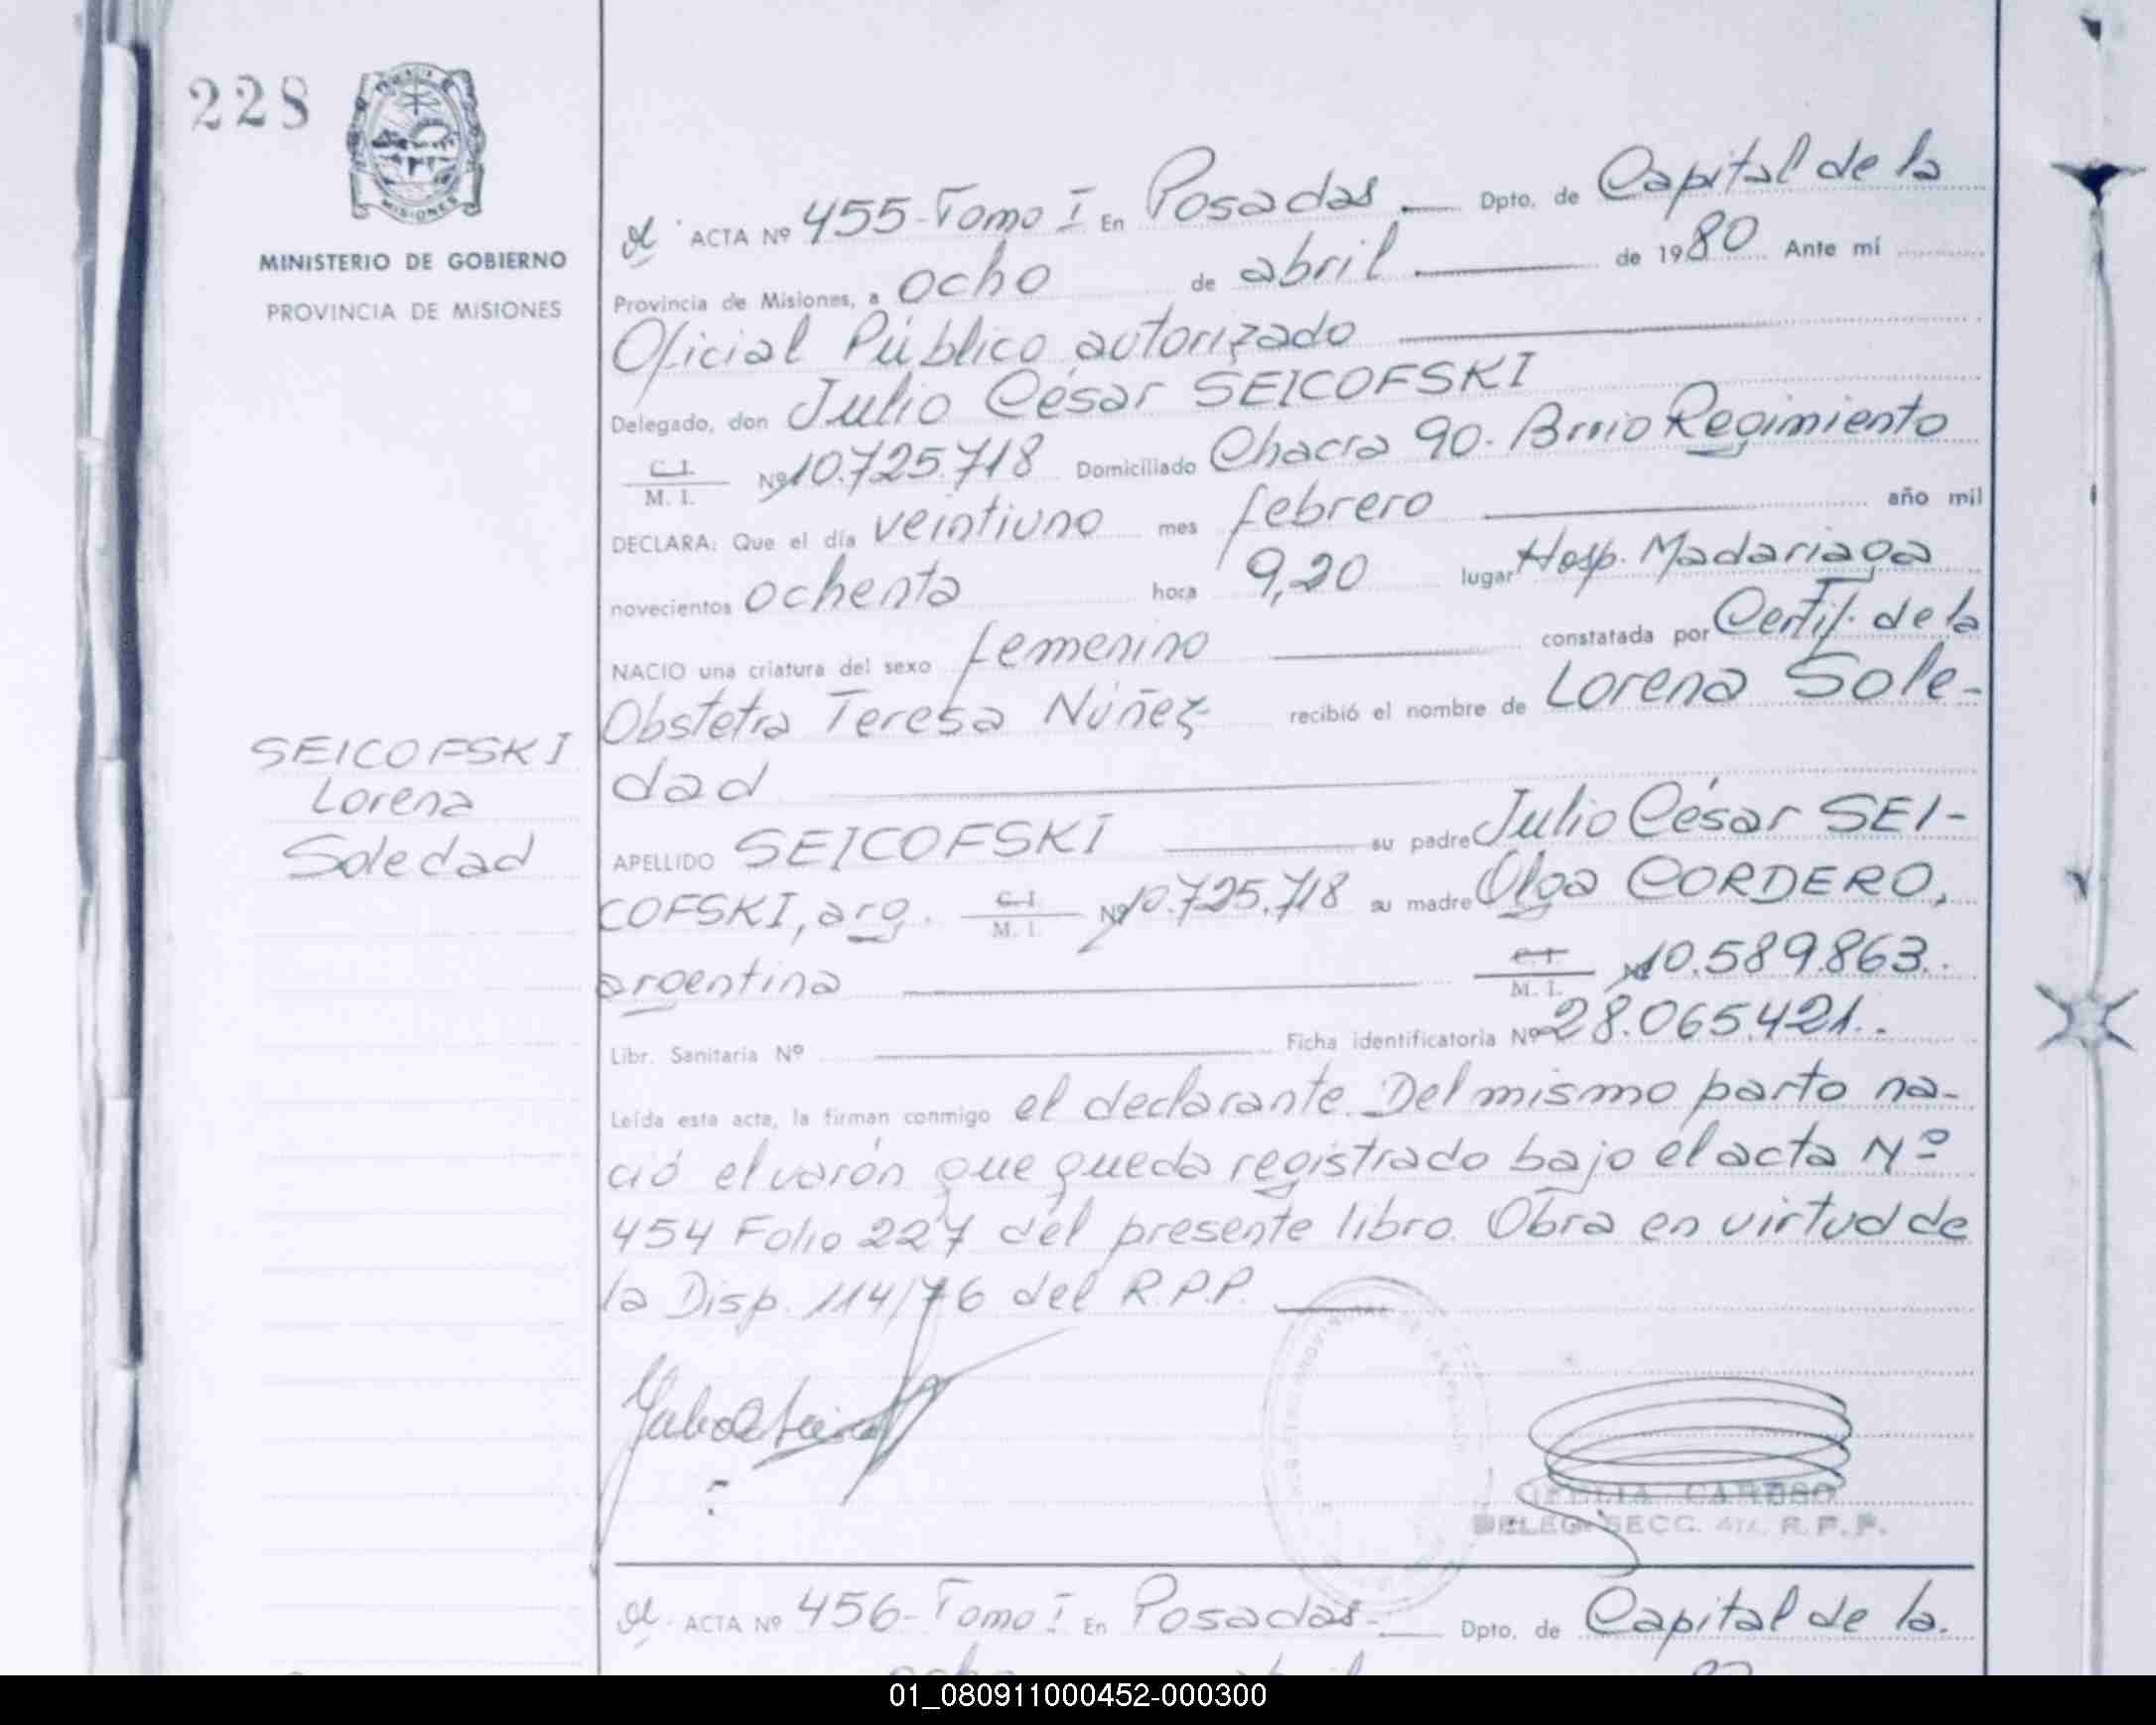 228
MISIONES
MINISTERIO DE GOBIERNO
PROVINCIA DE MISIONES
ACTA Nº 455-Tomo I En Posadas Dpto. de Capital de la
Provincia de Misiones, a ocho de abril de 1980 Ante mí
Oficial Público autorizado
Delegado, don Julio César SEICOFSKI
C. I. / M. I. Nº 10.725.718 Domiciliado Chacra 90- Brrio Regimiento
DECLARA: Que el día veintiuno mes febrero año mil
novecientos ochenta hora 9,20 lugar Hosp. Madariaga
NACIO una criatura del sexo femenino constatada por Certif. de la
Obstetra Teresa Núñez recibió el nombre de Lorena Sole-
dad
SEICOFSKI
Lorena
Soledad
APELLIDO SEICOFSKI su padre Julio César SEI-
COFSKI, arg. C. I. / M. I. Nº 10.725.718 su madre Olga CORDERO,
argentina C. I. / M. I. Nº 10.589.863.
Libr. Sanitaria Nº Ficha identificatoria Nº 28.065.421..
Leída esta acta, la firman conmigo el declarante. Del mismo parto na-
ció el varón que queda registrado bajo el acta Nº
454 Folio 227 del presente libro. Obra en virtud de
la Disp. 114/76 del R.P.P.
OFELIA CARUSO
DELEG. SECC. 4ta. R. P. P.
ACTA Nº 456-Tomo I En Posadas- Dpto. de Capital de la.
01_080911000452-000300